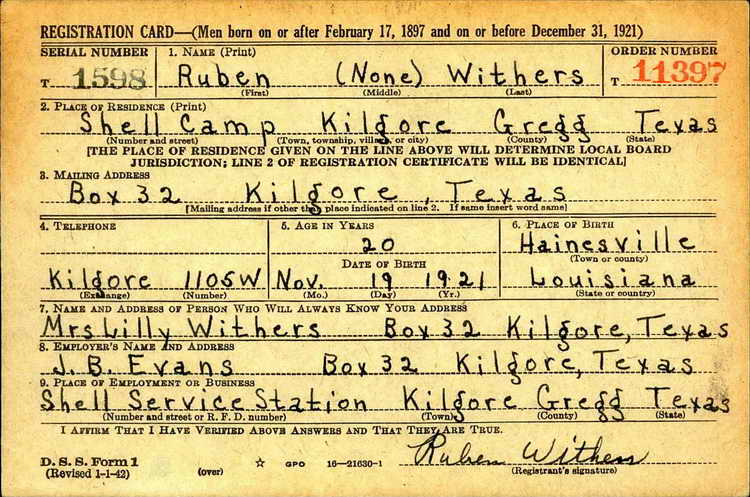 REGISTRATION CARD—(Men born on or after February 17, 1897 and on or before December 31, 1921)
SERIAL NUMBER 1. NAME (Print) ORDER NUMBER
T 1598 Ruben (None) Withers T 11397
(First) (Middle) (Last)
2. PLACE OF RESIDENCE (Print)
Shell Camp Kilgore Gregg Texas
(Number and street) (Town, township, village, or city) (County) (State)
[THE PLACE OF RESIDENCE GIVEN ON THE LINE ABOVE WILL DETERMINE LOCAL BOARD
JURISDICTION; LINE 2 OF REGISTRATION CERTIFICATE WILL BE IDENTICAL]
3. MAILING ADDRESS
Box 32 Kilgore, Texas
[Mailing address if other than place indicated on line 2. If same insert word same]
4. TELEPHONE 5. AGE IN YEARS 6. PLACE OF BIRTH
20 Hainesville
(Town or county)
DATE OF BIRTH
Kilgore 1105W Nov. 19 1921 Louisiana
(Exchange) (Number) (Mo.) (Day) (Yr.) (State or country)
7. NAME AND ADDRESS OF PERSON WHO WILL ALWAYS KNOW YOUR ADDRESS
Mrs Lilly Withers Box 32 Kilgore, Texas
8. EMPLOYER'S NAME AND ADDRESS
J. B. Evans Box 32 Kilgore, Texas
9. PLACE OF EMPLOYMENT OR BUSINESS
Shell Service Station Kilgore Gregg Texas
(Number and street or R. F. D. number) (Town) (County) (State)
I AFFIRM THAT I HAVE VERIFIED ABOVE ANSWERS AND THAT THEY ARE TRUE.
Ruben Withers
D. S. S. Form 1
(Revised 1-1-42) (over) ☆ GPO 16—21630-1 (Registrant's signature)